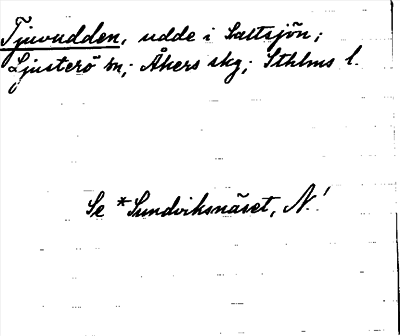 Tjuvudden, udde i Saltsjön;
Ljusterö sn; Åkers skg; Sthlms l.
Se *Sundviksnäset, N.!